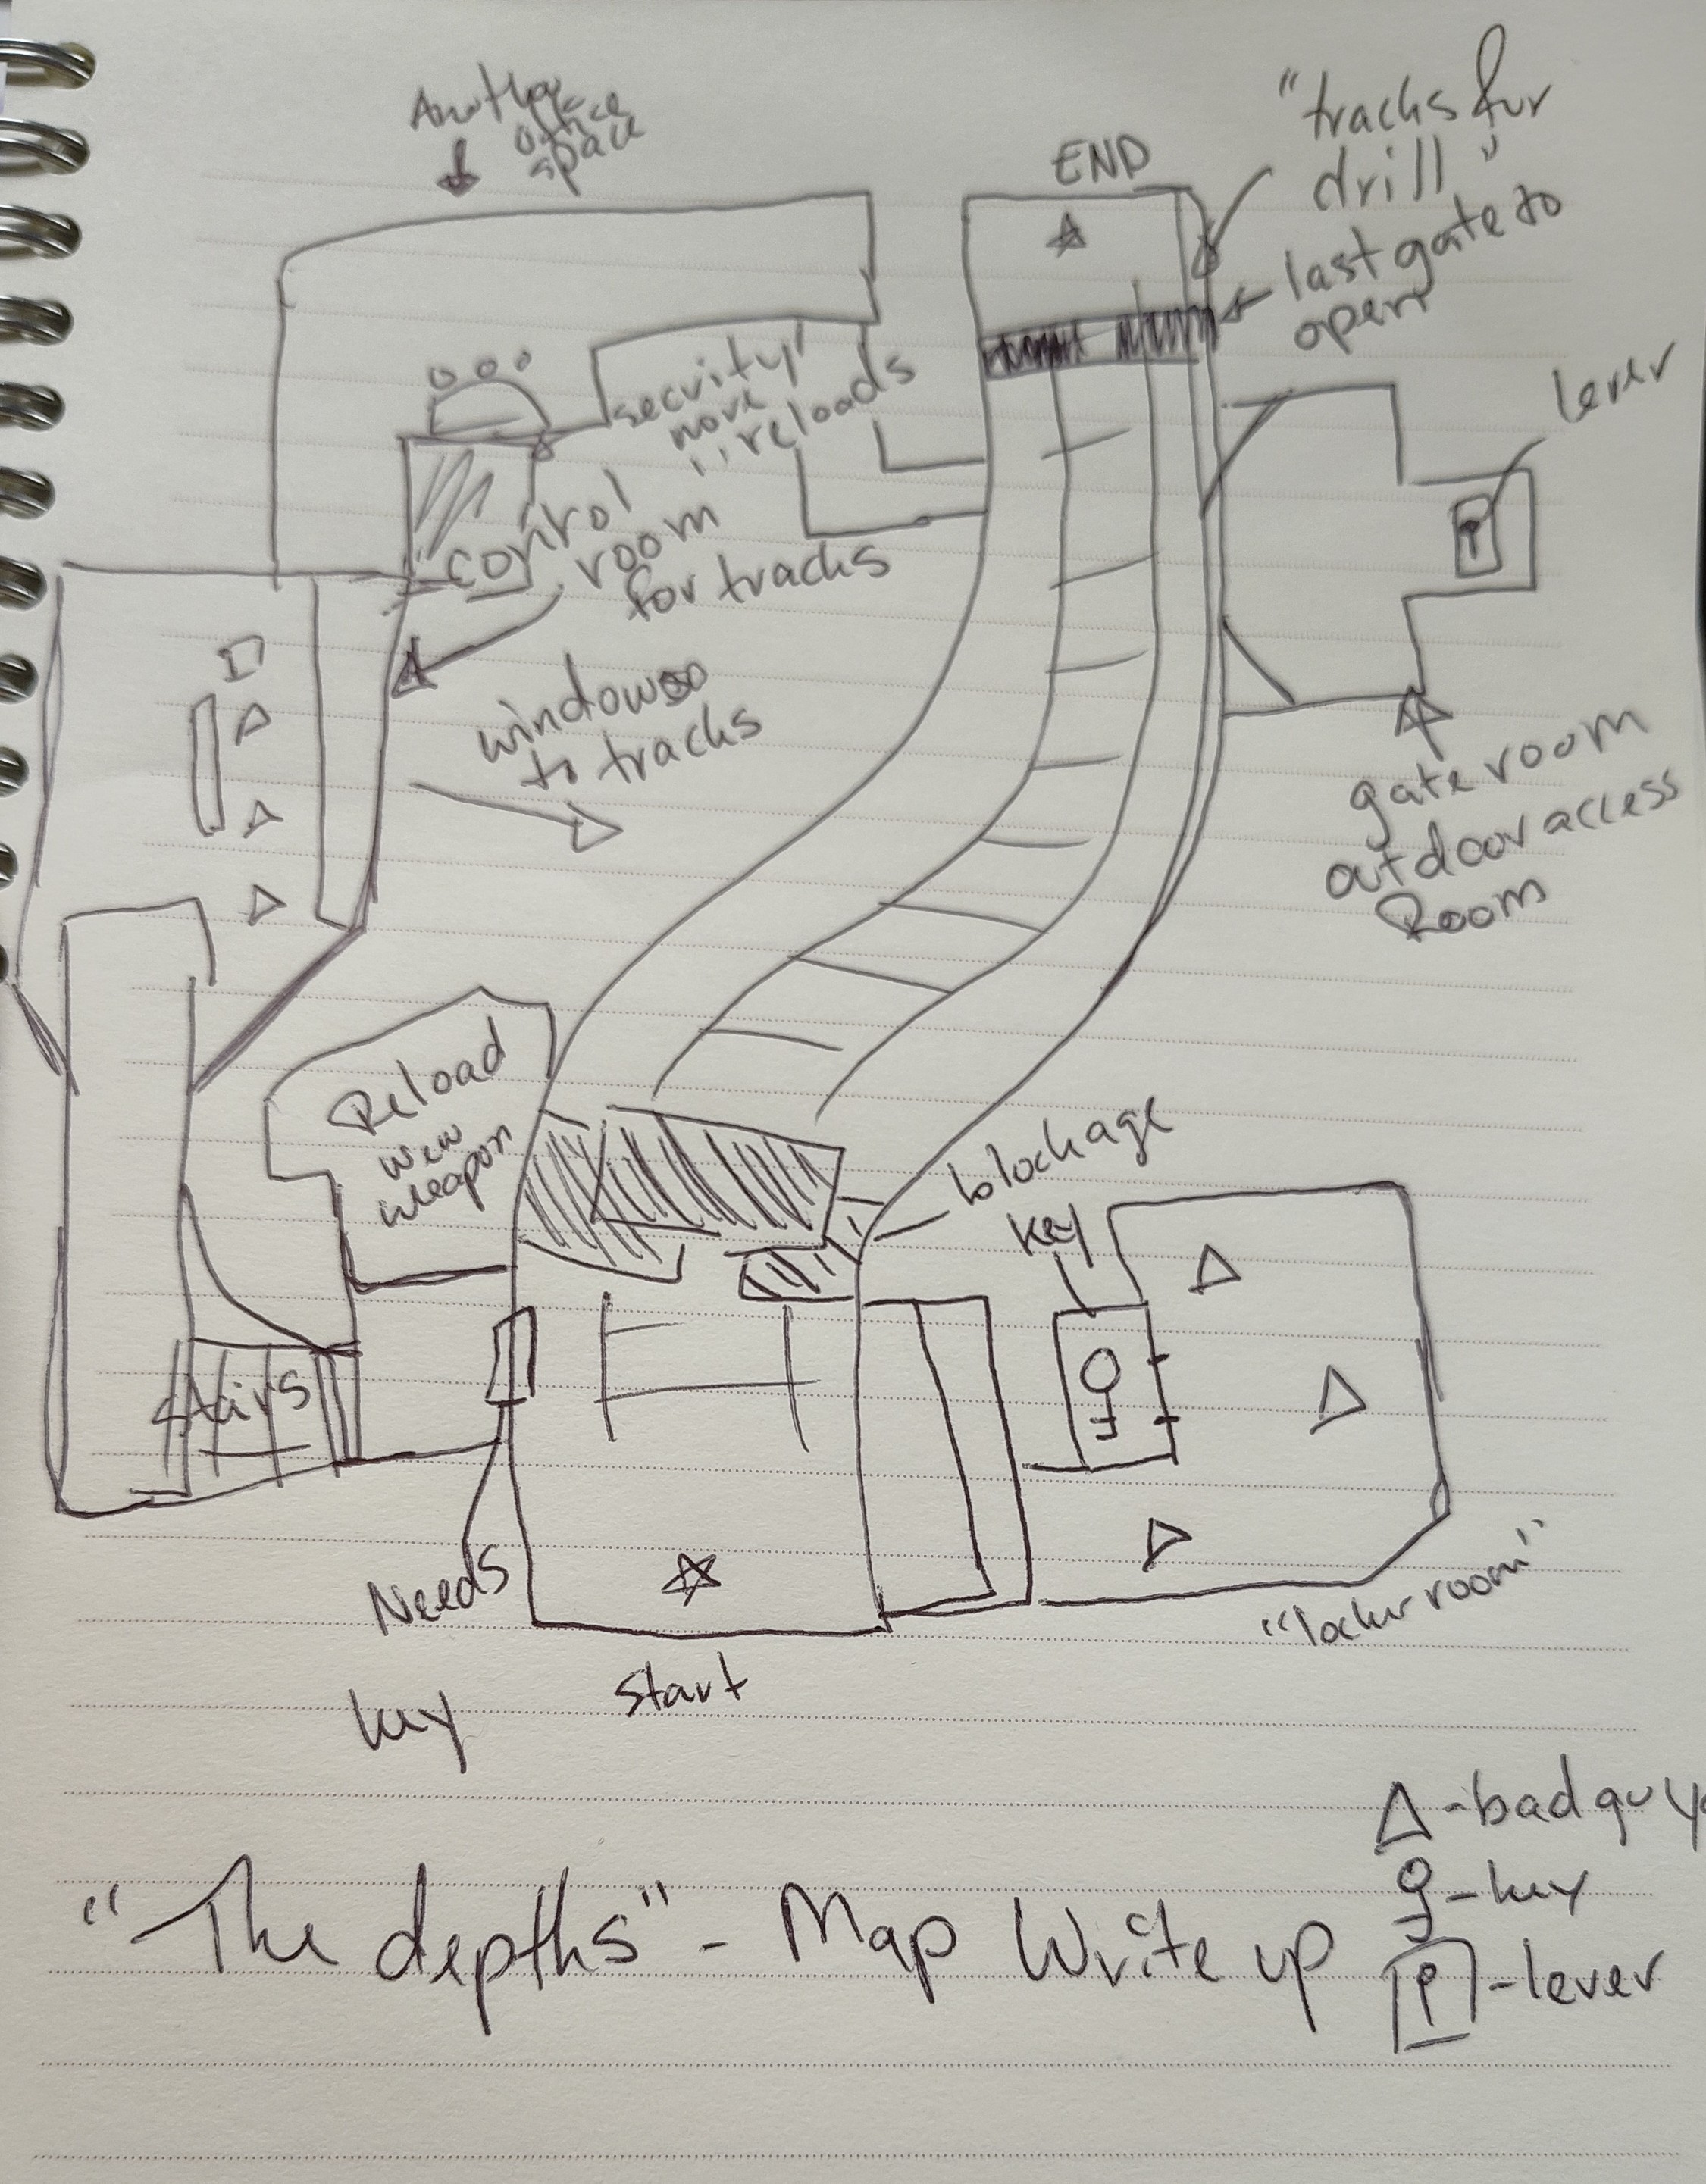 Another
office
space
END
"tracks for
drill"
last gate to
open
lever
security
more
reloads
control
room
for tracks
windows
to tracks
gate room
outdoor access
Room
Reload
new
weapon
blockage
key
stairs
Needs
key
start
"locker room"
"The depths" - Map Write up
△ - bad guys
- key
- lever